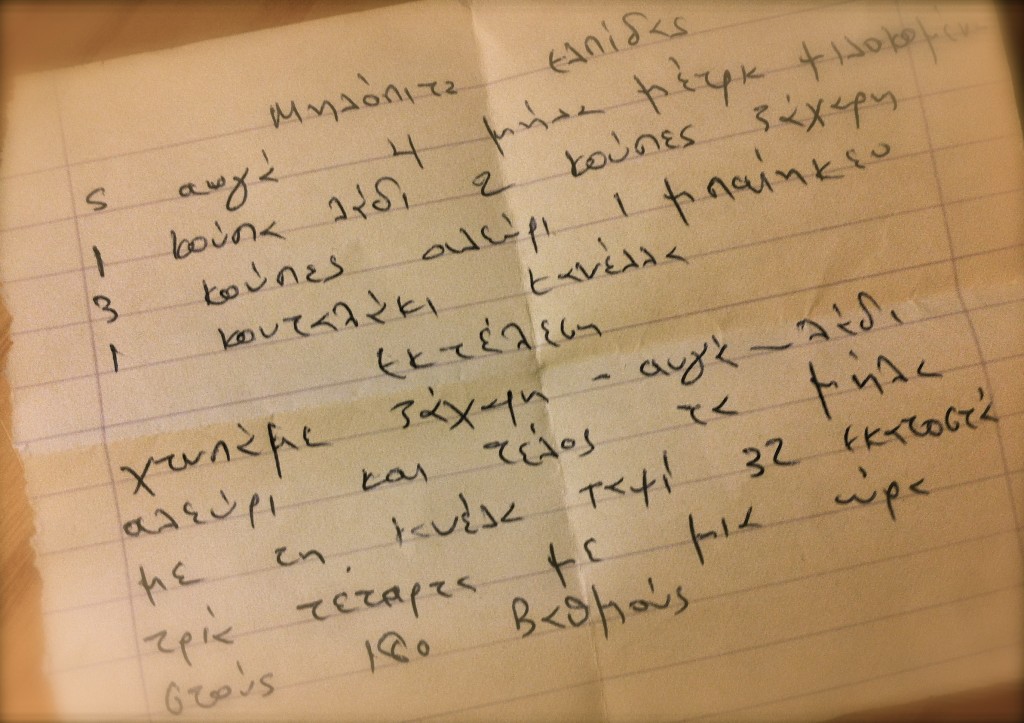 Μηλόπιτα ελπίδας
5 αυγά 4 μήλα μέτρια ψιλοκομένα
1 κούπα λάδι 2 κούπες ζάχαρη
3 κούπες αλεύρι 1 μπαίηκεν
1 κουταλάκι κανέλλα
Εκτέλεση
χτυπάμε ζάχαρη - αυγά - λάδι
αλεύρι και τέλος τα μήλα
με τη κανέλα ταψί 32 εκατοστά
τρία τέταρτα με μια ώρα
στούς 180 Βαθμούς